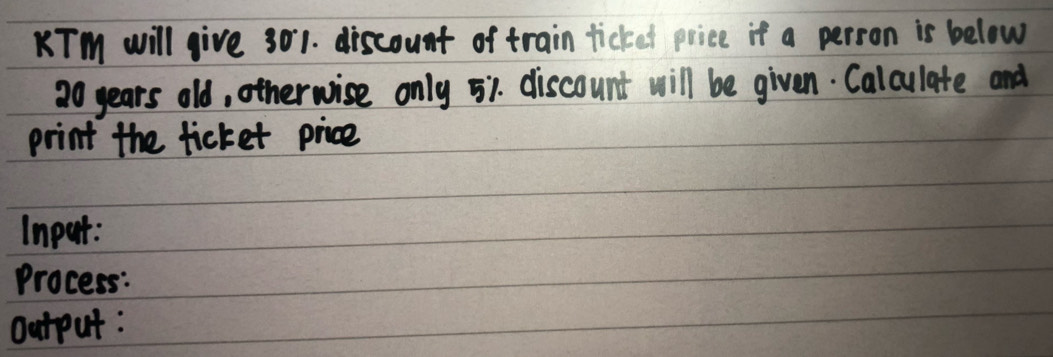 KTM will give 30%. discount of train ticket price if a person is below
20 years old, otherwise only 5% discount will be given. Calculate and
print the ticket price
Input:
Process:
Output: